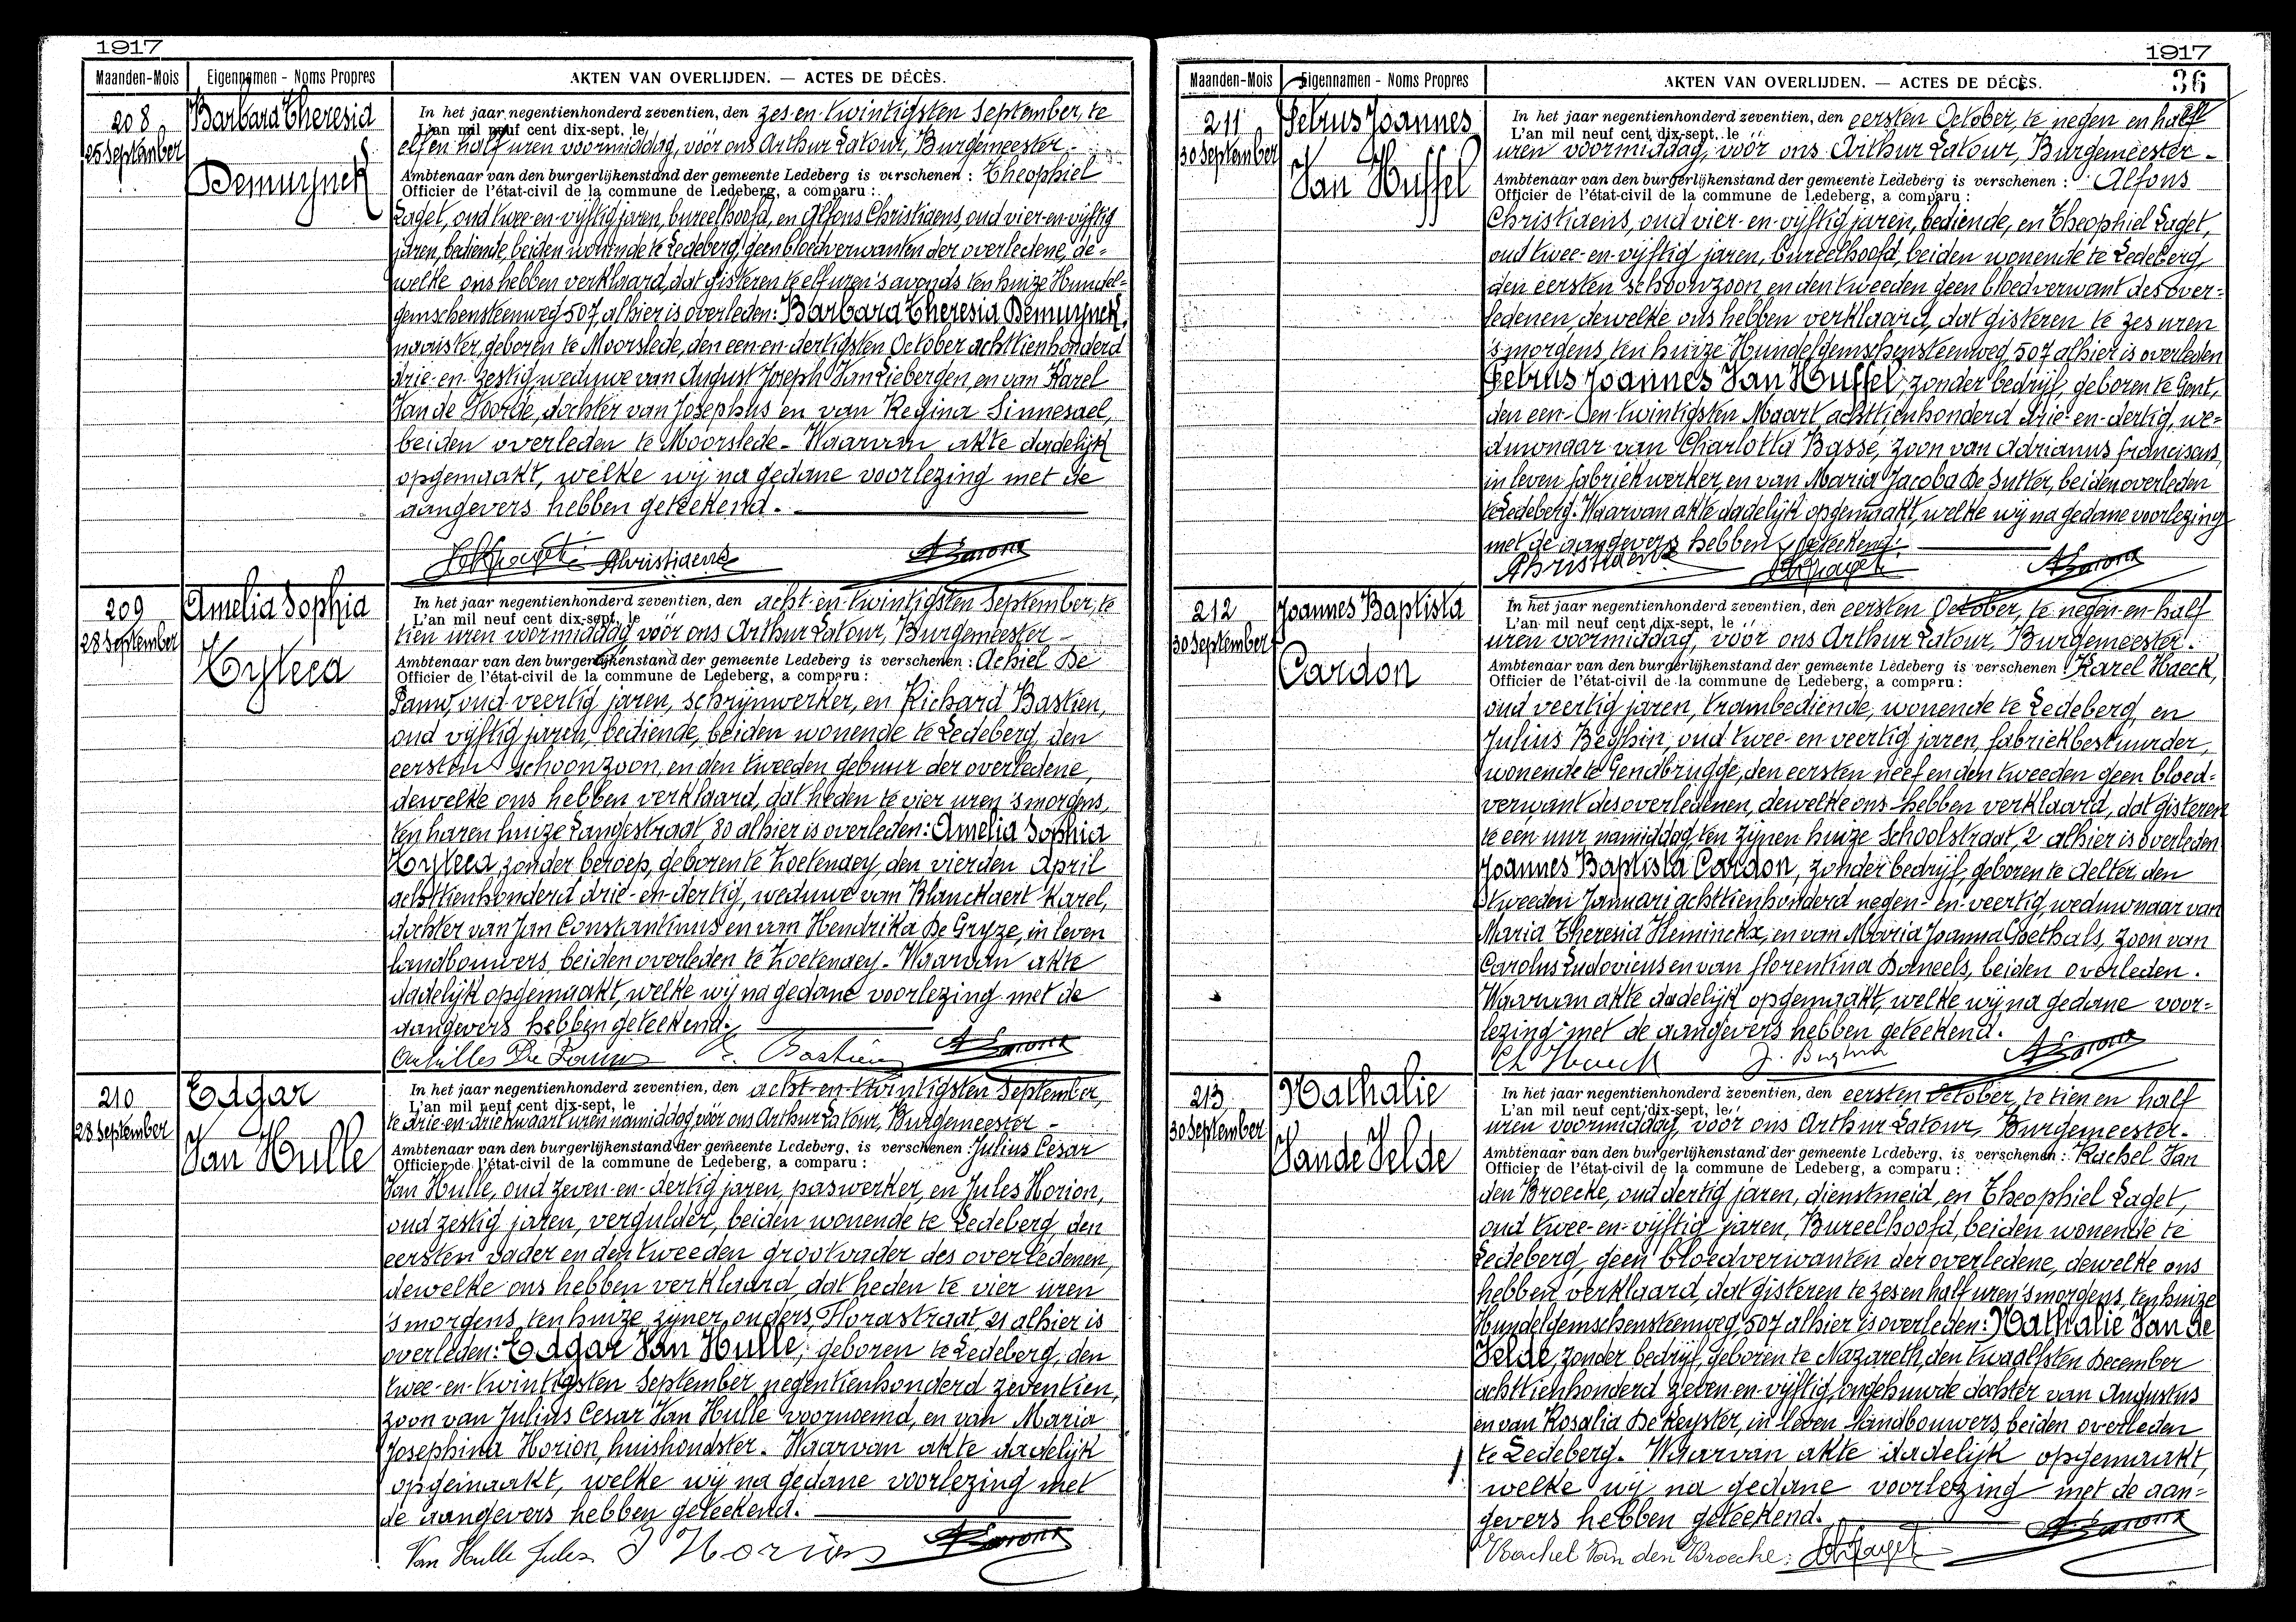 1917
Maanden-Mois Eigennamen - Noms Propres AKTEN VAN OVERLIJDEN. — ACTES DE DÉCÈS.
208
25 September
Barbara Theresia
Demuynck
In het jaar negentienhonderd zeventien, den zes-en-twintigsten September, te
L'an mil neuf cent dix-sept, le
elf en half uren voormiddag, vóór ons Arthur Latour, Burgemeester -
Ambtenaar van den burgerlijkenstand der gemeente Ledeberg is verschenen : Theophiel
Officier de l'état-civil de la commune de Ledeberg, a comparu :
Laget, oud twee-en-vijftig jaren, bureelhoofd, en Alfons Christiaens, oud vier-en-vijftig
jaren, bediende, beiden wonende te Ledeberg, geen bloedverwanten der overledene, de-
welke ons hebben verklaard, dat gisteren te elf uren 's avonds ten huize Hundel-
gemschensteenweg 507 alhier is overleden: Barbara Theresia Demuynck,
naaister, geboren te Moorslede, den een-en-dertigsten October achttienhonderd
drie-en-zestig, weduwe van August Joseph Van Liebergen, en van Karel
Van de Voorde, dochter van Josephus en van Regina Sinnesael,
beiden overleden te Moorslede - Waarvan akte dadelijk
opgemaakt, welke wij na gedane voorlezing met de
aangevers hebben geteekend.
AChristiaens ALatour
209
28 September
Amelia Sophia
Hyleea
In het jaar negentienhonderd zeventien, den acht-en-twintigsten September, te
L'an mil neuf cent dix-sept, le
tien uren voormiddag vóór ons Arthur Latour, Burgemeester -
Ambtenaar van den burgerlijkenstand der gemeente Ledeberg is verschenen : Achiel De
Officier de l'état-civil de la commune de Ledeberg, a comparu :
Pauw, oud veertig jaren, schrijnwerker, en Richard Bastien,
oud vijftig jaren, bediende, beiden wonende te Ledeberg, den
eersten schoonzoon, en den tweeden gebuur der overledene,
dewelke ons hebben verklaard, dat heden te vier uren 's morgens,
ten haren huize Langestraat 80 alhier is overleden: Amelia Sophia
zonder beroep, geboren te Zoetenaey, den vierden April
achttienhonderd drie-en-dertig, weduwe van Blanckaert Karel,
dochter van Jan Constantinus en van Hendrika De Gryze, in leven
landbouwers, beiden overleden te Zoetenaey - Waarvan akte
dadelijk opgemaakt, welke wij na gedane voorlezing met de
aangevers hebben geteekend.
Achilles De Pauw R. Bastien ALatour
210
28 September
Edgar
Van Hulle
In het jaar negentienhonderd zeventien, den acht-en-twintigsten September,
L'an mil neuf cent dix-sept, le
te drie-en-drie kwaart uren namiddag, vóór ons Arthur Latour, Burgemeester -
Ambtenaar van den burgerlijkenstand der gemeente Ledeberg, is verschenen : Julius Cesar
Officier de l'état-civil de la commune de Ledeberg, a comparu :
Van Hulle, oud zeven-en-dertig jaren, paswerker, en Jules Horion,
oud zestig jaren, vergulder, beiden wonende te Ledeberg, den
eersten vader en den tweeden grootvader des overledenen,
dewelke ons hebben verklaard, dat heden te vier uren
's morgens, ten huize zijner ouders, Florastraat, 21 alhier is
overleden: Edgar Van Hulle, geboren te Ledeberg, den
twee-en-twintigsten September negentienhonderd zeventien,
zoon van Julius Cesar Van Hulle voornoemd, en van Maria
Josephina Horion, huishoudster. Waarvan akte dadelijk
opgemaakt, welke wij na gedane voorlezing met
de aangevers hebben geteekend.
Van Hulle Jules J Horion ALatour
1917
36
Maanden-Mois Eigennamen - Noms Propres AKTEN VAN OVERLIJDEN. — ACTES DE DÉCÈS.
211
30 September
Petrus Joannes
Van Huffel
In het jaar negentienhonderd zeventien, den eersten October, te negen en half
L'an mil neuf cent dix-sept, le
uren voormiddag, vóór ons Arthur Latour, Burgemeester -
Ambtenaar van den burgerlijkenstand der gemeente Ledeberg is verschenen : Alfons
Officier de l'état-civil de la commune de Ledeberg, a comparu :
Christiaens, oud vier-en-vijftig jaren, bediende, en Theophiel Laget,
oud twee-en-vijftig jaren, bureelhoofd, beiden wonende te Ledeberg,
den eersten schoonzoon en den tweeden geen bloedverwant des over-
ledenen, dewelke ons hebben verklaard, dat gisteren te zes uren
's morgens ten huize Hundelgemschensteenweg, 507 alhier is overleden
Petrus Joannes Van Huffel, zonder bedrijf, geboren te Gent,
den een-en-twintigsten Maart achttienhonderd drie-en-dertig, we-
duwnaar van Charlotta Basse, zoon van Adrianus Franciscus,
in leven fabriekwerker, en van Maria Jacoba De Sutter, beiden overleden
te Ledeberg. Waarvan akte dadelijk opgemaakt, welke wij na gedane voorlezing
met de aangevers hebben geteekend.
AChristiaens ALatour
212
30 September
Joannes Baptista
Cardon
In het jaar negentienhonderd zeventien, den eersten October, te negen-en-half
L'an mil neuf cent dix-sept, le
uren voormiddag, vóór ons Arthur Latour, Burgemeester.
Ambtenaar van den burgerlijkenstand der gemeente Ledeberg is verschenen : Karel Haeck,
Officier de l'état-civil de la commune de Ledeberg, a comparu :
oud veertig jaren, trambediende, wonende te Ledeberg, en
Julius Beghin, oud twee-en-veertig jaren, fabriekbestuurder,
wonende te Gendbrugge, den eersten neef en den tweeden geen bloed-
verwant des overledenen, dewelke ons hebben verklaard, dat gisteren
te een uur namiddag, ten zijnen huize Schoolstraat, 2 alhier is overleden
Joannes Baptista Cardon, zonder bedrijf, geboren te Aelter, den
tweeden Januari achttienhonderd negen-en-veertig, weduwnaar van
Maria Theresia Heminckx, en van Maria Joanna Goethals, zoon van
Carolus Ludovicus en van Florentina Daneels, beiden overleden.
Waarvan akte dadelijk opgemaakt, welke wij na gedane voor-
lezing met de aangevers hebben geteekend.
Ch Haeck J. Beghin ALatour
213
30 September
Nathalie
Van de Velde
In het jaar negentienhonderd zeventien, den eersten October, te tien en half
L'an mil neuf cent dix-sept, le
uren voormiddag, vóór ons Arthur Latour, Burgemeester.
Ambtenaar van den burgerlijkenstand der gemeente Ledeberg, is verschenen : Rachel Van
Officier de l'état-civil de la commune de Ledeberg, a comparu :
den Broecke, oud dertig jaren, dienstmeid, en Theophiel Laget,
oud twee-en-vijftig jaren, Bureelhoofd, beiden wonende te
Ledeberg, geen bloedverwanten der overledene, dewelke ons
hebben verklaard, dat gisteren te zes en half uren 's morgens, ten huize
Hundelgemschensteenweg, 507 alhier is overleden: Nathalie Van de
Velde, zonder bedrijf, geboren te Nazareth, den twaalfsten December
achttienhonderd zeven-en-vijftig, ongehuwde dochter van Augustus
en van Rosalia De Keyster, in leven landbouwers, beiden overleden
te Ledeberg. Waarvan akte dadelijk opgemaakt,
welke wij na gedane voorlezing met de aan-
gevers hebben geteekend.
Rachel Van den Broecke. ThLaget ALatour